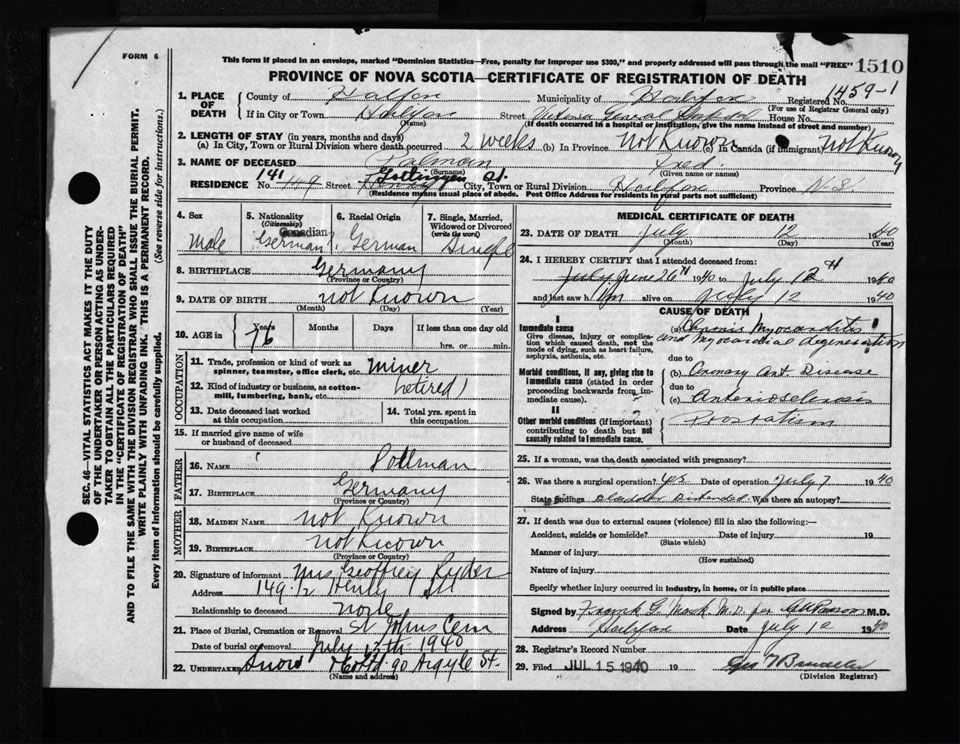 FORM 6
This form if placed in an envelope, marked "Dominion Statistics—Free, penalty for improper use $300," and properly addressed will pass through the mail "FREE"
1510
PROVINCE OF NOVA SCOTIA—CERTIFICATE OF REGISTRATION OF DEATH
1459-1
1. PLACE OF DEATH County of Halifax Municipality of Halifax Registered No.
(For use of Registrar General only)
If in City or Town Halifax Street Victoria General House No.
(Name) (If death occurred in a hospital or institution, give the name instead of street and number)
2. LENGTH OF STAY (in years, months and days)
(a) In City, Town or Rural Division where death occurred 2 weeks (b) In Province Not Known (c) In Canada (if immigrant) Not Known
3. NAME OF DECEASED Pa
lman Fred
(Surname) (Given name or names)
141 Gottingen St.
RESIDENCE No. 149 Street Henry City, Town or Rural Division Halifax Province N.S
(Residence means usual place of abode. Post Office Address for residents in rural parts not sufficient)
4. Sex
Male
5. Nationality
(Citizenship)
Canadian
German
6. Racial Origin
German
7. Single, Married, Widowed or Divorced
(write the word)
Single
8. BIRTHPLACE Germany
(Province or Country)
9. DATE OF BIRTH not Known
(Month) (Day) (Year)
10. AGE in Years Months Days If less than one day old
76 hrs. or min.
OCCUPATION
11. Trade, profession or kind of work as spinner, teamster, office clerk, etc. Miner
12. Kind of industry or business, as cotton-mill, lumbering, bank, etc. retired
13. Date deceased last worked at this occupation
14. Total yrs. spent in this occupation
15. If married give name of wife or husband of deceased
FATHER
16. NAME Pollman
17. BIRTHPLACE Germany
(Province or Country)
MOTHER
18. MAIDEN NAME not Known
19. BIRTHPLACE not Known
(Province or Country)
20. Signature of informant Mrs Geoffrey Ryder
Address 149 1/2 Henry St
Relationship to deceased none
21. Place of Burial, Cremation or Removal St Johns Cem
Date of burial or removal July 13th 1940
22. UNDERTAKER Snow & Co Ltd. 90 Argyle St.
(Name and address)
MEDICAL CERTIFICATE OF DEATH
23. DATE OF DEATH July 12 1940
(Month) (Day) (Year)
24. I HEREBY CERTIFY that I attended deceased from:
July June 26th 1940 to July 12th 1940
and last saw him alive on July 12 1940
CAUSE OF DEATH
I
Immediate cause
Give disease, injury or complication which caused death, not the mode of dying, such as heart failure, asphyxia, asthenia, etc.
(a) Chronic Myocarditis
and Myocardial degeneration
due to
Morbid conditions, if any, giving rise to immediate cause (stated in order proceeding backwards from immediate cause).
(b) Coronary Art. Disease
due to
(c) Arteriosclerosis
II
Other morbid conditions (if important) contributing to death but not causally related to immediate cause.
Prostatism
25. If a woman, was the death associated with pregnancy?
26. Was there a surgical operation? yes Date of operation July 7 1940
State findings Bladder Distended Was there an autopsy?
27. If death was due to external causes (violence) fill in also the following:—
Accident, suicide or homicide? Date of injury 19
(State which)
Manner of injury
(How sustained)
Nature of injury
Specify whether injury occurred in industry, in home, or in public place
Signed by Frank G. Mack M.D. for M.D.
Address Halifax Date July 12 1940
28. Registrar's Record Number
29. Filed JUL 15 1940 19
(Division Registrar)
SEC. 46—VITAL STATISTICS ACT MAKES IT THE DUTY OF THE UNDERTAKER OR PERSON ACTING AS UNDERTAKER TO OBTAIN ALL THE PARTICULARS REQUIRED IN THE "CERTIFICATE OF REGISTRATION OF DEATH" AND TO FILE THE SAME WITH THE DIVISION REGISTRAR WHO SHALL ISSUE THE BURIAL PERMIT.
WRITE PLAINLY WITH UNFADING INK. THIS IS A PERMANENT RECORD.
Every item of information should be carefully supplied. (See reverse side for instructions.)